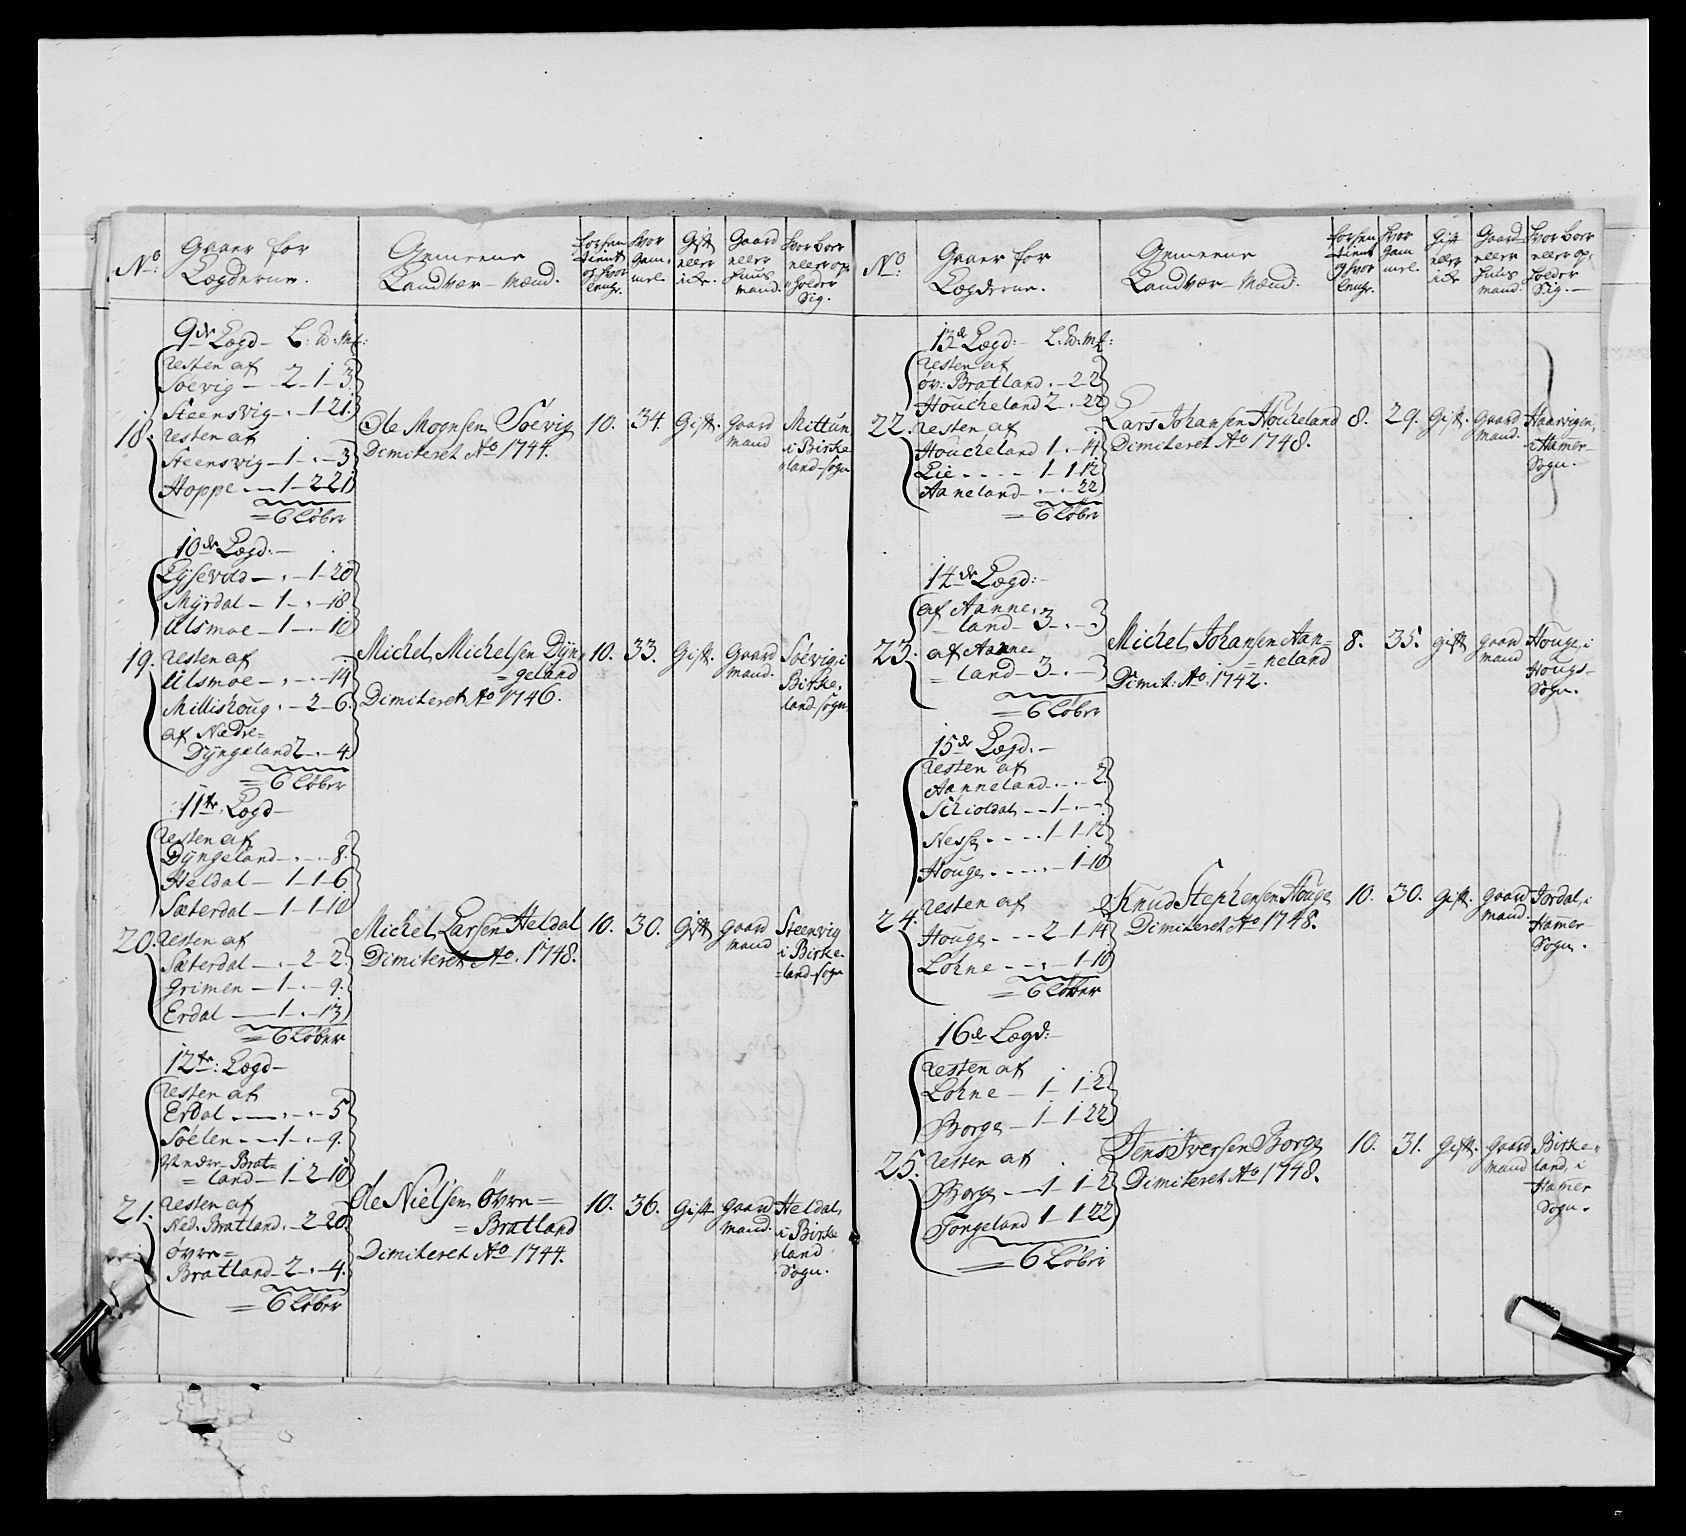 No.
Gaarer for
Lægderne.
Gemeene
Landvær-Mænd.
forhen
tient
og hvor
lenge.
Hvor
Gam-
mel.
Gift
eller
ick.
Gaard
eller
Huus
mand.
Hvor boer
eller op-
holder
Sig.
9de Lægd - L: P: Mk:
Resten af
Søevig - - 2 - 1 - 3
Steensvig - . - 1 - 21
18.
Resten af
Steensvig - 1 - . - 3
Hoppe - - 1 - 2 - 21
= 6 Løber
Ole Monsen Søevig
Dimiteret Ao 1744.
10.
34.
Gift.
Gaard
mand
Mittun
i Birke
land-sogn
10de Lægd. -
Lysevold - . - 1 - 20
Myrdal - 1 - . - 18.
Ulsmoe - 1 - . - 10
19.
Resten af
Ulsmoe - . - . - 14
Millishoug . - 2 - 6.
af Nædre=
Dyngeland 2 - . - 4.
= 6 Løber
Michel Michelsen Dyn
= geland
Dimiteret Ao 1746.
10.
33.
Gift.
Gaard
mand.
Søevig, i
Birke,
land-sogn
11te: Lægd -
Resten af
Dyngeland - . - . - 8.
Heldal - 1 - 1 - 6
Sæterdal - 1 - 1 - 10
20.
Resten af
Sæterdal - . - 2 - 2.
Grimen - 1 - . - 9.
Erdal - 1 - . - 13
= 6 Løber
Michel Larsen Heldal
Dimiteret Ao. 1748.
10.
30.
Gift
Gaard
mand
Steenvig
i Birke-
=land-sogn
12te: Lægd -
Resten af
Erdal - . - . - 5
Søelen - - 1 - . - 9.
Nædre Brat=
= land - 1 - 2 - 10
21.
Resten af
Ned. Bratland . - 2 - 20.
Øvre=
Bratland - 2 - . - 4.
= 6 Løber
Ole Nielsen Øvre =
= Bratland
Dimiteret Ao 1744.
10.
36.
Gift
Gaard
mand.
Heldal,
i Birke
land
Sogn.
No:
Gaarer for
Lægderne.
Gemeene
Landvær-Mænd.
forhen
tient
og hvor
lenge.
Hvor
Gam
mel.
Gift
eller
ick
Gaard
eller
Huus
mand.
Hvor boer
eller op-
holder
Sig. -
13de Lægd: - L. P. Mk:
Resten af
øv: Bratland . - 2 - 2
Houcheland 2 . - 22
22.
Resten af
Houcheland 1 . - 4
Lie - - - - 1 - 1 - 12
Aaneland - . - . - 22
= 6 Løber
Lars Johansen Houcheland
Dimiteret Ao 1748.
8.
29.
Gift.
Gaard
mand.
Haarvigen,
i Hamer-
Sogn.
14de Lægd: -
af Aanne,
= land - 3 - . -
23.
af Aanne
= land - 3 - . -
= 6 Løber
Michel Johansen Aan=
= neland
Dimit: Ao. 1742.
8.
35.
Gift
Gaard
mand
Houge, i
Hougs-
Sogn.
15de Lægd. -
Resten af
Aanneland - . - . - 2.
Schioldal - - 1 - . - .
Nesse - . - . - 1 - 1 - 12
Houge - . - . - . - 1 - 10
24.
Resten af
Houge - - - 2 - 1 - 14
Lohne - - . - 1 - 10
= 6 Løber
Knud Stephensen Houge
Dimiteret Ao 1748.
10.
30.
Gift.
Gaard
mand.
Jordal, i
Hamer
Sogn.
16de Lægd: -
Resten af
Lohne - 1 - 1 - 2.
Borge - 1 - 1 - 22
25.
Resten af
Borge - - 1 - 1 - 2
Tongeland 1 - 1 - 22
= 6 Løber
Jens Iversen Borge
Dimiteret Ao 1748.
10.
31.
Gift.
Gaard
mand
Birke-
land, i
Hamer
Sogn.